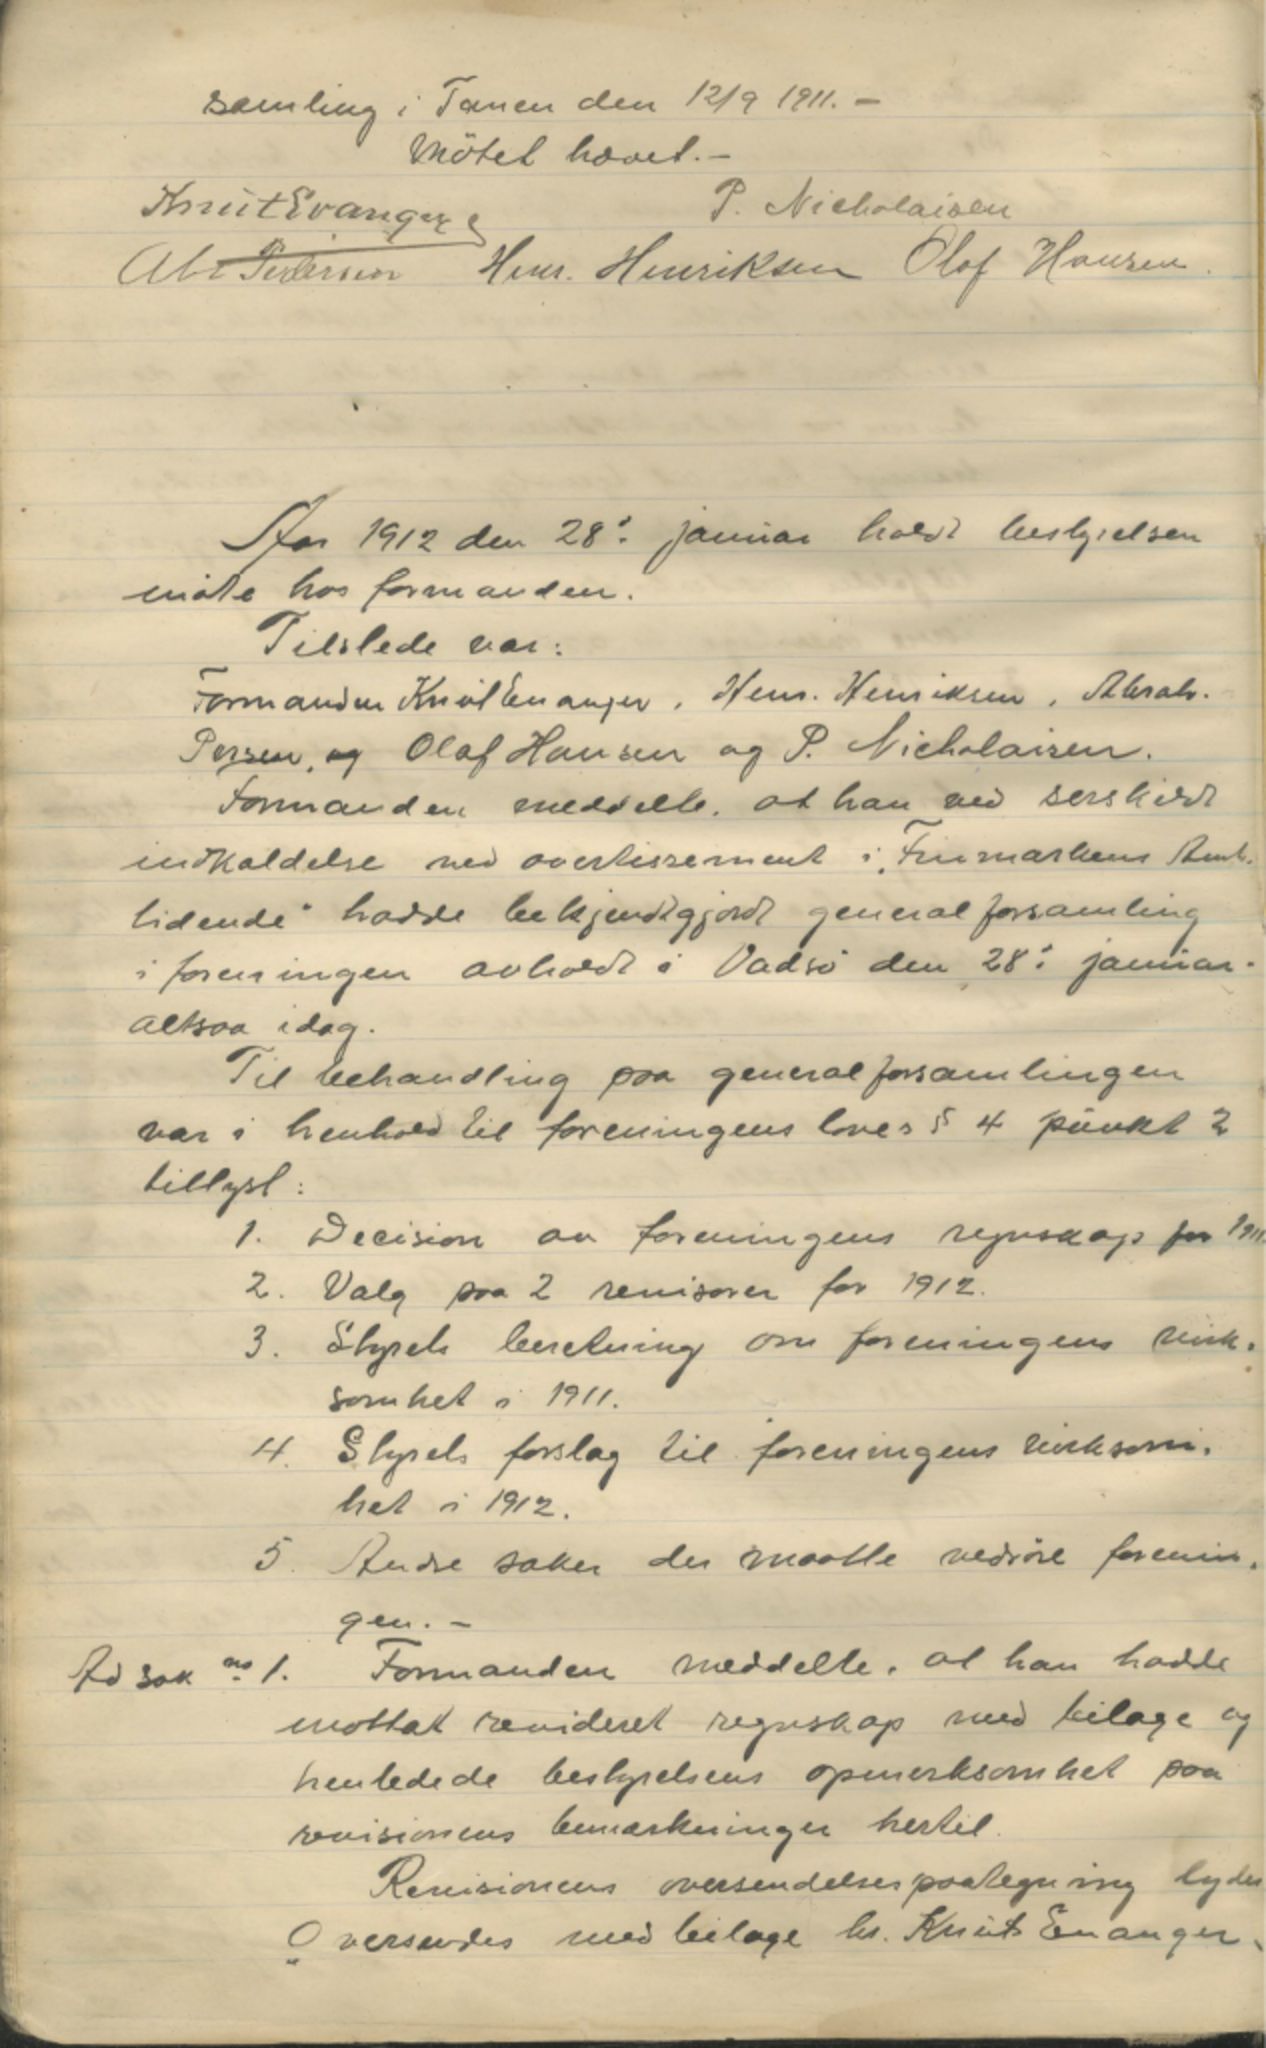 samling i Tanen den 12/9 1911. –
Mötet hævet. –
Knut Evanger P. Nicholaisen
Abr Pedersen Henr. Henriksen Olaf Hansen.
Aar 1912 den 28' januar holdt bestyrelsen
möte hos formanden.
Tilstede var:
Formanden Knut Evanger, Henr. Henriksen, Abrah.
Persen, og Olaf Hansen og P. Nicholaisen.
Formanden meddelte, at han ved serskildt
indkaldelse ved avertissement i „Finmarkens Amts-
tidende" hadde bekjendtgjordt generalforsamling
i foreningen avholdt i Vadsö den 28' januar -
altsaa idag.
Til behandling paa generalforsamlingen
var i henhold til foreningens loves § 4 punkt 2
tillyst:
1. Decision av foreningens regnskap for 1911.
2. Valg paa 2 revisorer for 1912.
3. Styrets beretning om foreningens virk-
somhet i 1911.
4. Styrets forslag til foreningens virksom-
het i 1912.
5. Andre saker der maatte vedröre forenin-
gen. –
Ad sak no 1. Formanden meddelte, at han hadde
mottat revideret regnskap med bilage og
henledede bestyrelsens opmerksomhet paa
revisionens bemærkninger hertil.
Revisionens oversendelsespaategning lyder
Oversendes med bilage hr. Knut Evanger,